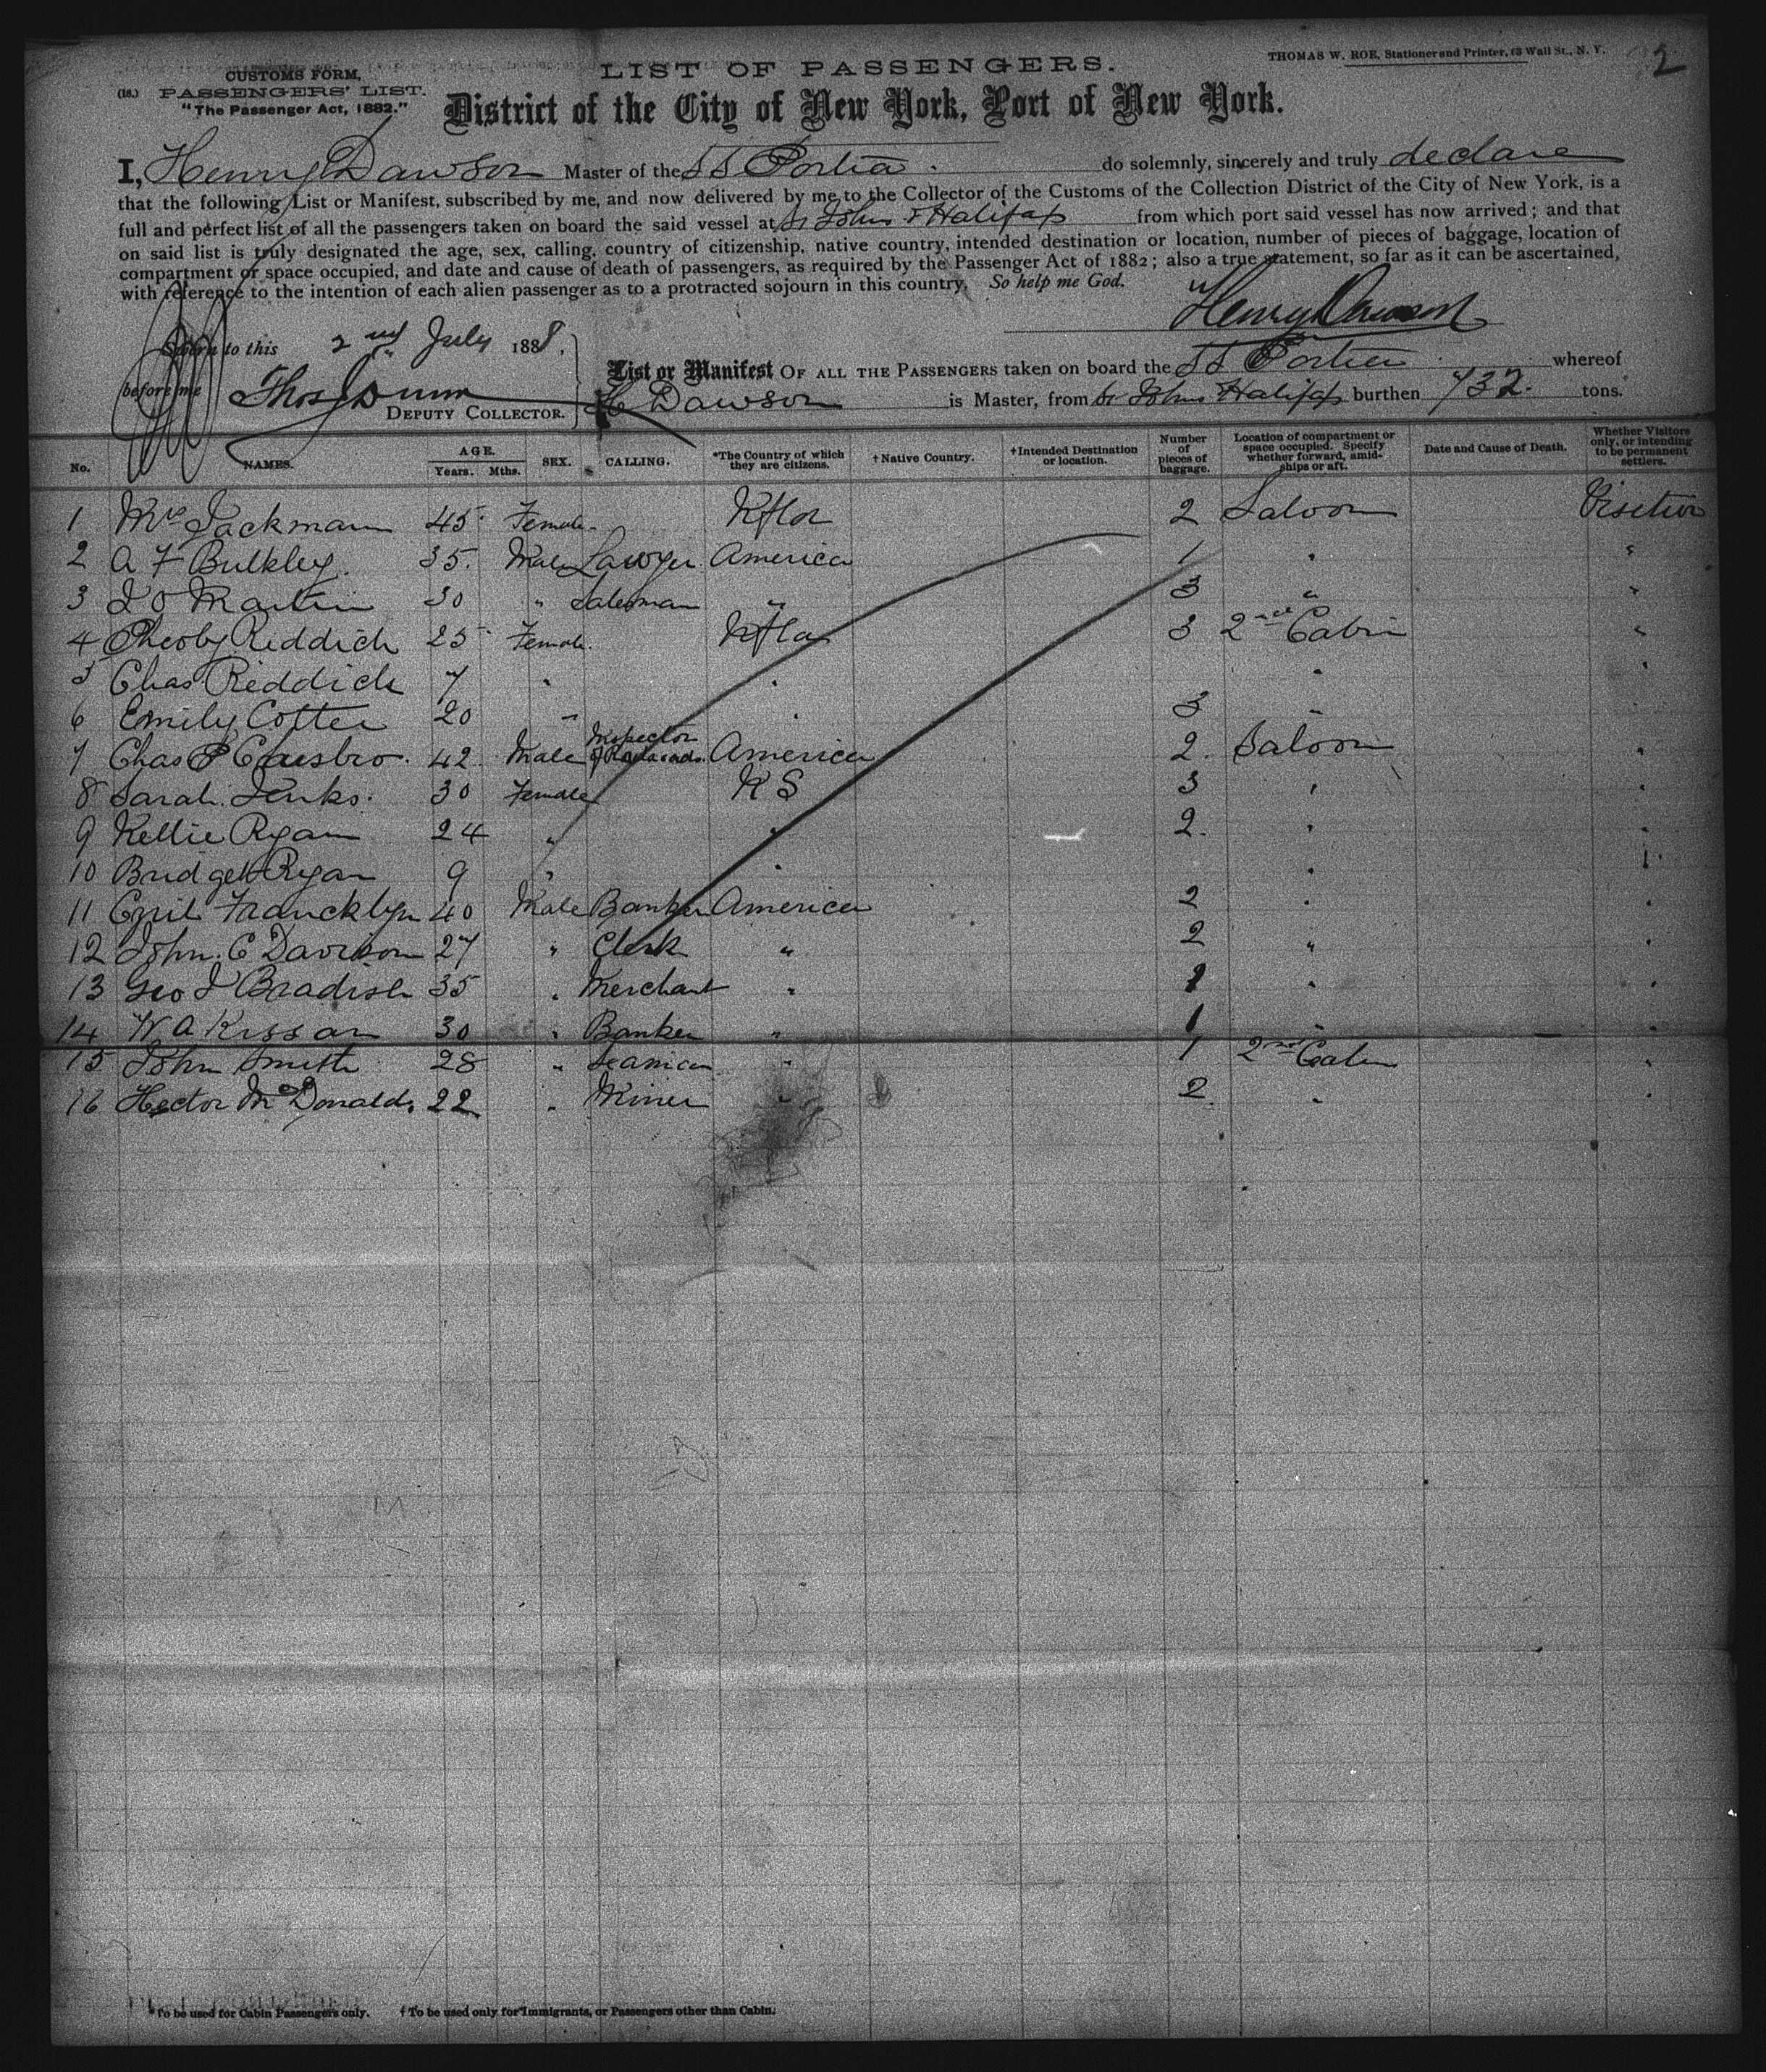 2
THOMAS W. ROE, Stationer and Printer, 63 Wall St., N. Y.
LIST OF PASSENGERS.
CUSTOMS FORM,
(18.) PASSENGERS' LIST.
"The Passenger Act, 1882."
District of the City of New York, Port of New York.
I, Henry Dawson Master of the SS Portia. do solemnly, sincerely and truly declare
that the following List or Manifest, subscribed by me, and now delivered by me to the Collector of the Customs of the Collection District of the City of New York, is a
full and perfect list of all the passengers taken on board the said vessel at St Johns & Halifax from which port said vessel has now arrived; and that
on said list is truly designated the age, sex, calling, country of citizenship, native country, intended destination or location, number of pieces of baggage, location of
compartment or space occupied, and date and cause of death of passengers, as required by the Passenger Act of 1882; also a true statement, so far as it can be ascertained,
with reference to the intention of each alien passenger as to a protracted sojourn in this country. So help me God.
Henry Dawson
Sworn to this 2nd July 1888.
before me Thos Dunn
DEPUTY COLLECTOR.
List or Manifest OF ALL THE PASSENGERS taken on board the SS Portia whereof
H Dawson is Master, from St Johns Halifax burthen 732 tons.
No. NAMES. AGE. Years. Mths. SEX. CALLING. *The Country of which they are citizens. †Native Country. †Intended Destination or location. Number of pieces of baggage. Location of compartment or space occupied. Specify whether forward, amidships or aft. Date and Cause of Death. Whether Visitors only, or intending to be permanent settlers.
1 Mrs Jackman 45 Female 2 Saloon
2 A F Bulkley. 35. Male Lawyer America 1 "
3 J O Martin 30 " Salesman " 3 " "
4 Pheoby Reddich 25 Female. 3 2nd Cabin "
5 Chas Reddich 7 " " " "
6 Emily Cotter 20 " " 3 "
7 Chas P 42 Male Inspector of Railroads. America 2. Saloon "
8 Sarah Jenks. 30 Female N S 3 " "
9 Nellie Ryan 24 " " 2. " "
10 Bridget Ryan 9 " " "
11 Cyril Francklyn 40 Male Banker America 2 " "
12 John. C Davison 27 " Clerk " 2 " "
13 Geo J Bradish 35 " Merchant " 1 " "
14 W A Kissam 30 " Banker " 1 " "
15 John Smith 28 " Seaman " 1 2nd Cabin "
16 Hector McDonald. 22 " Miner " 2. " "
*To be used for Cabin Passengers only. †To be used only for Immigrants, or Passengers other than Cabin.